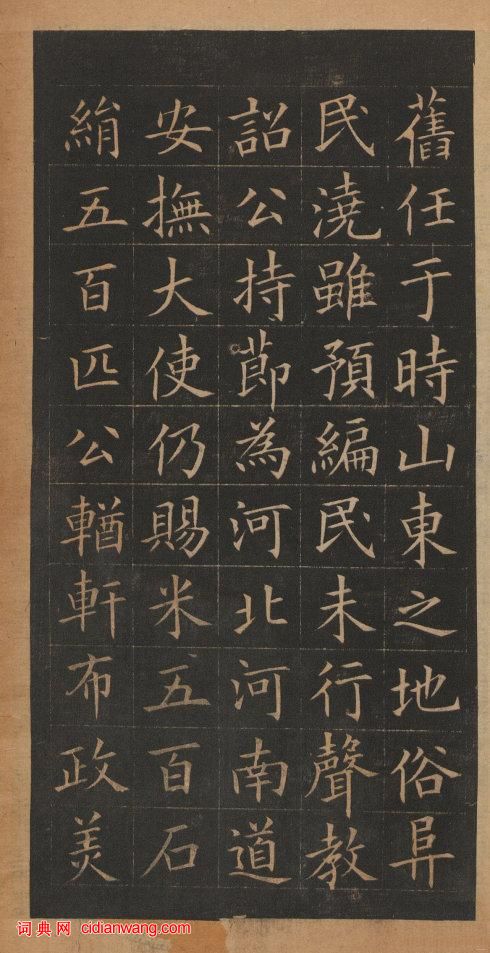 舊任于時山東之地俗阜
民澆雖預編民未行聲教
詔公持節為河北河南道
安撫大使仍賜米五百石
絹五百匹公輶軒布政美
词典网 cidianwang.com